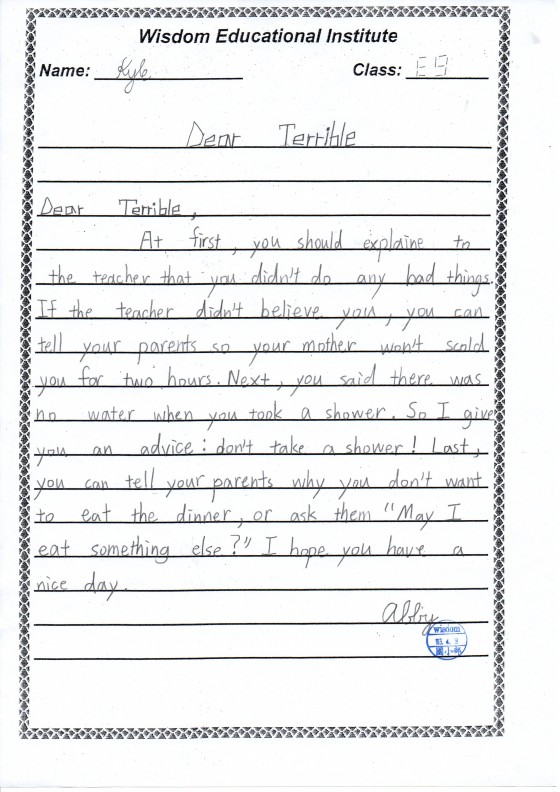 Wisdom Educational Institute
Name: Kyle Class: E9
Dear Terrible
Dear Terrible,
At first, you should explaine to
the teacher that you didn't do any bad things.
If the teacher didn't believe you, you can
tell your parents so your mother won't scold
you for two hours. Next, you said there was
no water when you took a shower. So I give
you an advice: don't take a shower! Last,
you can tell your parents why you don't want
to eat the dinner, or ask them "May I
eat something else?" I hope you have a
nice day.
Abby
Wisdom